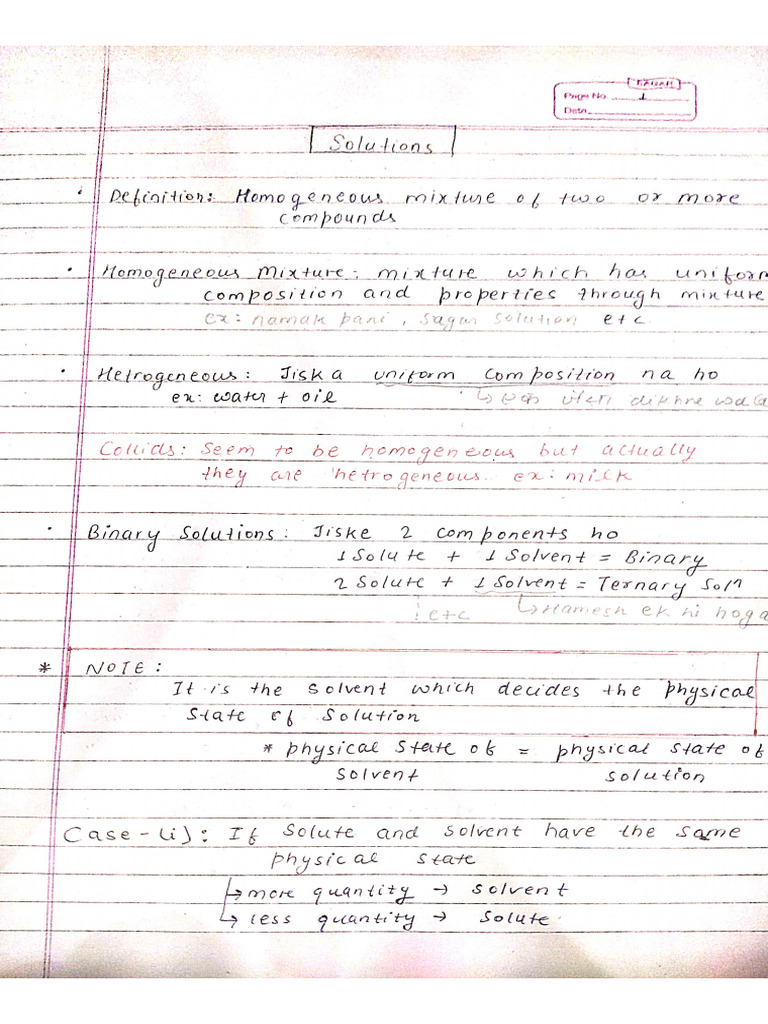 Page No. 1
Date
Solutions
• Definition: Homogeneous mixture of two or more
compounds
• Homogeneous Mixture: mixture which has uniform
composition and properties through mixture
ex: namak pani, sagar solution etc.
• Hetrogeneous: Jiska uniform composition na ho
ex: water + oil ↳ dikhne wala
Collids: Seem to be homogeneous but actually
they are hetrogeneous. ex: milk
• Binary Solutions: Jiske 2 components ho
1 Solute + 1 Solvent = Binary
2 Solute + 1 Solvent = Ternary Solⁿ
etc ↳ Hamesh ek hi hoga
* NOTE:
It is the solvent which decides the physical
state of solution
* physical state of = physical state of
solvent solution
Case-(i): If solute and solvent have the same
physical state
↳ more quantity → solvent
↳ less quantity → solute